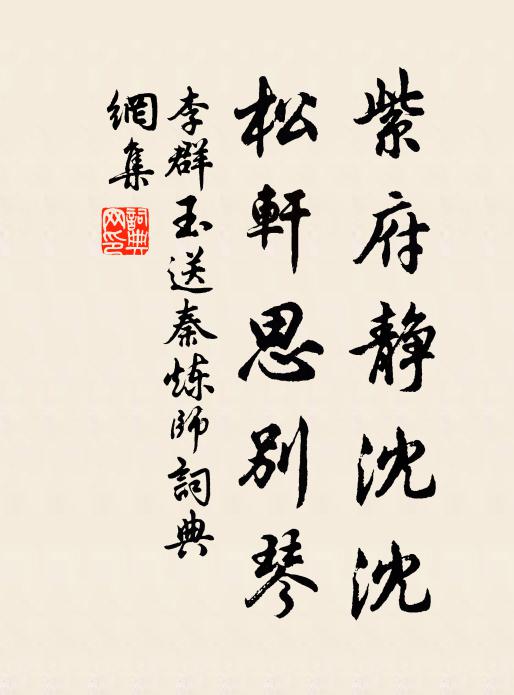 紫府静沈沈
松軒思別琴
李群玉送秦炼師詞典
網集
詞典网印